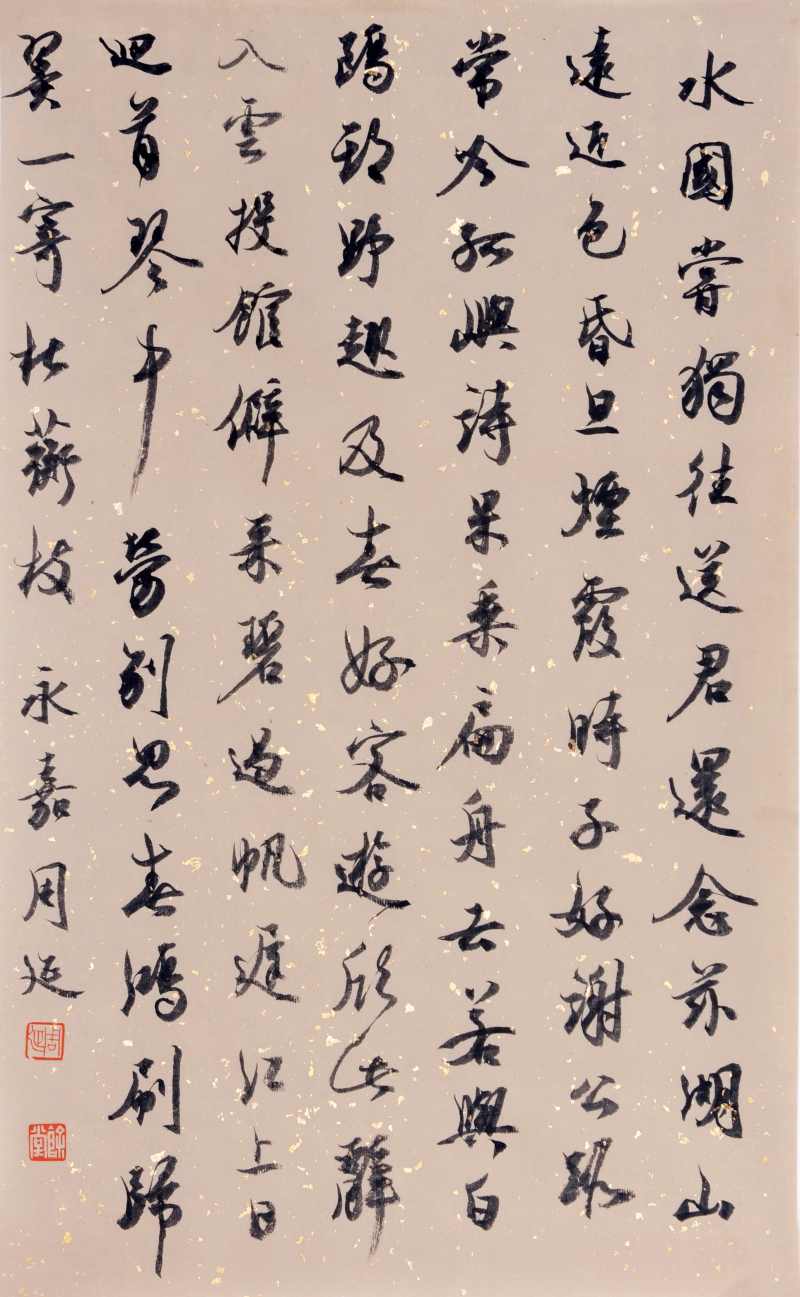 水國嘗獨往送君還念茲湖山
遠近色昏旦煙霞時子好謝公跡
常吟孤嶼詩果乘扁舟去若與白
鷗期野趣及春好客遊欣此辭
入雲投館僻采碧過帆遲江上日
迴首琴中勞別思春鴻刷歸
翼一寄杜蘅枝 永嘉周延
周延